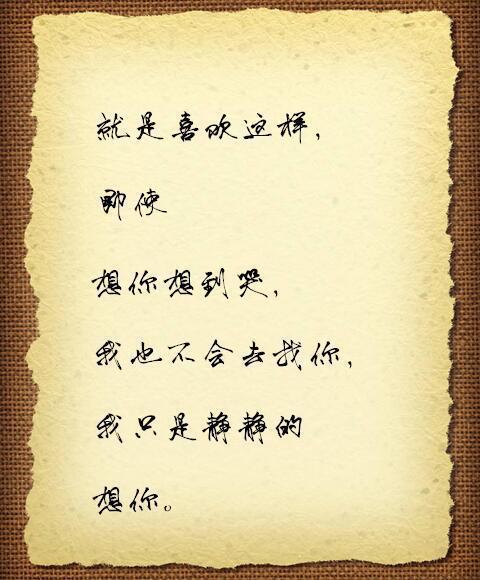 就是喜欢这样,
即使
想你想到哭,
我也不会去找你,
我只是静静的
想你。